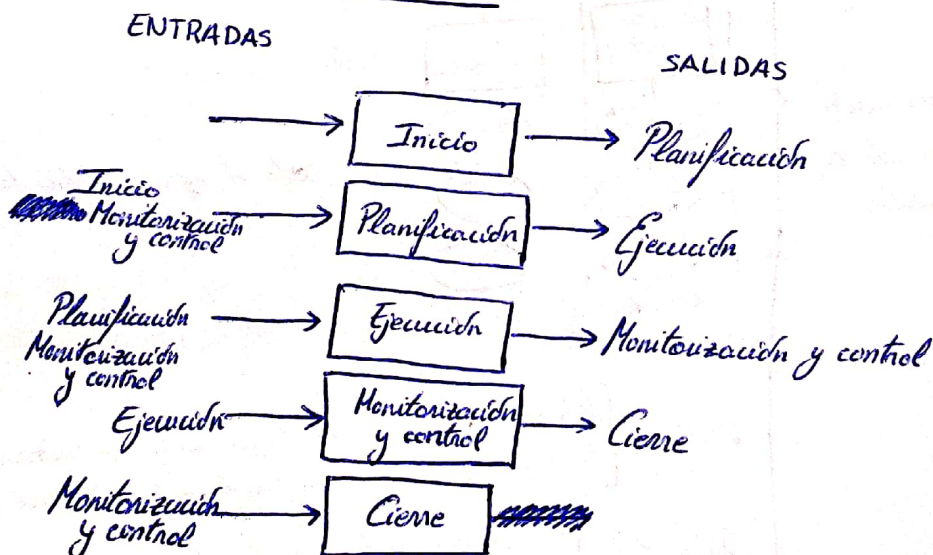 ENTRADAS
SALIDAS
Inicio
Planificación
Inicio
Monitorización
y control
Planificación
Ejecución
Planificación
Monitorización
y control
Ejecución
Monitorización y control
Ejecución
Monitorización
y control
Cierre
Monitorización
y control
Cierre